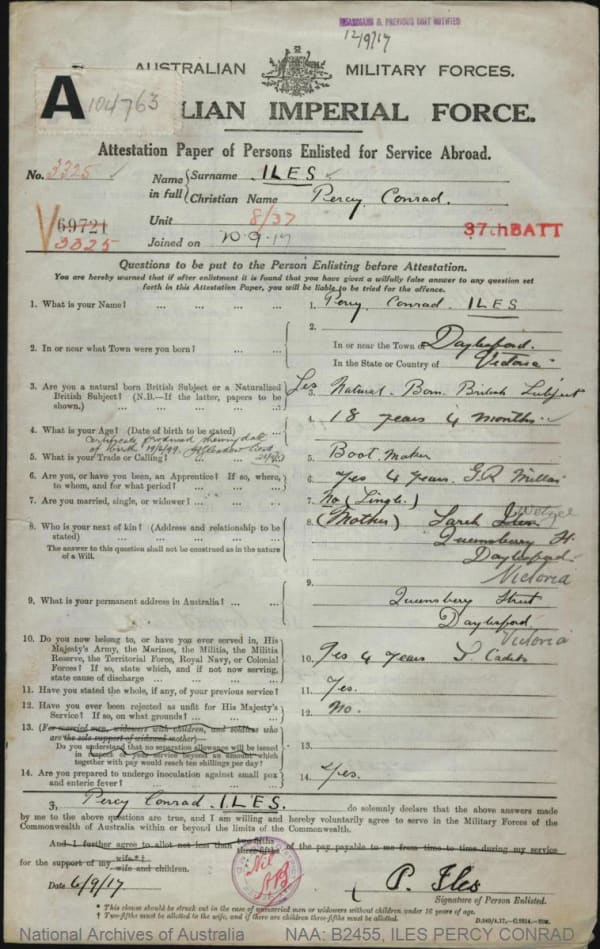 12/9/17
AUSTRALIAN MILITARY FORCES.
A 104763
LIAN IMPERIAL FORCE.
Attestation Paper of Persons Enlisted for Service Abroad.
No. 3325
Name in full { Surname ILES
Christian Name Percy Conrad.
Unit 8/37
V 69721
3325
37th BATT
Joined on 10-9-17
Questions to be put to the Person Enlisting before Attestation.
You are hereby warned that if after enlistment it is found that you have given a wilfully false answer to any question set
forth in this Attestation Paper, you will be liable to be tried for the offence.
1. What is your Name? ... ... ... ... 1. Percy Conrad ILES
2. In or near what Town were you born? ... ... 2. In or near the Town of Daylesford.
In the State or Country of Victoria
3. Are you a natural born British Subject or a Naturalized
British Subject? (N.B.—If the latter, papers to be
shown.) ... ... ... ... ... 3. Yes Natural Born British Subject
4. What is your Age? (Date of birth to be stated) ... 4. 18 years 4 months
Certificate produced shewing date
of birth
5. What is your Trade or Calling? 5. Boot Maker
6. Are you, or have you been, an Apprentice? If so, where,
to whom, and for what period? ... ... ... 6. Yes 4 years. G.R. Millar
7. Are you married, single, or widower? ... ... 7. No (Single)
8. Who is your next of kin? (Address and relationship to be
stated) ... ... ... ... ... 8. (Mother) Sarah Iles
The answer to this question shall not be construed as in the nature
of a Will.
Queensberry St.
Daylesford.
Victoria
9. What is your permanent address in Australia? ... ... 9.
Queensberry Street
Daylesford
Victoria
10. Do you now belong to, or have you ever served in, His
Majesty's Army, the Marines, the Militia, the Militia
Reserve, the Territorial Force, Royal Navy, or Colonial
Forces? If so, state which, and if not now serving,
state cause of discharge ... ... ... ... 10. Yes 4 years S. Cadets
11. Have you stated the whole, if any, of your previous service? 11. Yes.
12. Have you ever been rejected as unfit for His Majesty's
Service? If so, on what grounds? ... ... ... 12. No.
13. (For married men, widowers with children, and soldiers who
are the sole support of widowed mother)—
Do you understand that no separation allowance will be issued
in respect of your service beyond an amount which
together with pay would reach ten shillings per day? 13.
14. Are you prepared to undergo inoculation against small pox
and enteric fever? ... ... ... ... 14. Yes.
I, Percy Conrad ILES. do solemnly declare that the above answers made
by me to the above questions are true, and I am willing and hereby voluntarily agree to serve in the Military Forces of the
Commonwealth of Australia within or beyond the limits of the Commonwealth.
And I further agree to allot not less than two-fifths three-fifths of the pay payable to me from time to time during my service
for the support of my wife*†
wife and children.
Nil
Date 6/9/17
P. Iles
Signature of Person Enlisted.
* This clause should be struck out in the case of unmarried men or widowers without children under 16 years of age.
† Two-fifths must be allotted to the wife, and if there are children three-fifths must be allotted.
National Archives of Australia NAA: B2455, ILES PERCY CONRAD